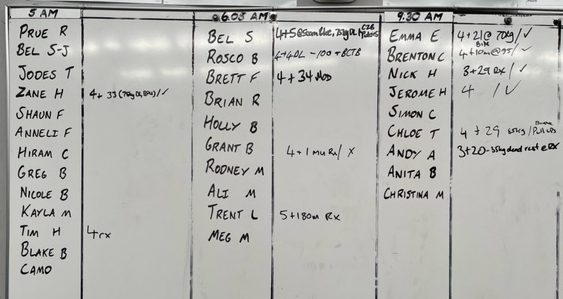 5 AM
PRUE R
BEL S-J
JODES T
ZANE H 4+33 (70kg DL, BW) / ✓
SHAUN F
ANNELI F
HIRAM C
GREG B
NICOLE B
KAYLA M
TIM H 4rx
BLAKE B
CAMO
6.05 AM
BEL S 4+5 @ 50cm
ROSCO B 4+4DL -100+
BRETT F 4+34
BRIAN R
HOLLY B
GRANT B 4+1mu Rx / X
RODNEY M
ALI M
TRENT L 5+180m Rx
MEG M
9.30 AM
EMMA E 4+21 @ 70kg / ✓
BRENTON C 4+10m @ 95 / ✓
NICK H 3+29 Rx / ✓
JEROME H 4 / ✓
SIMON C
CHLOE T 4+29 55kg / Pull ups
ANDY A 3+20
ANITA B
CHRISTINA M